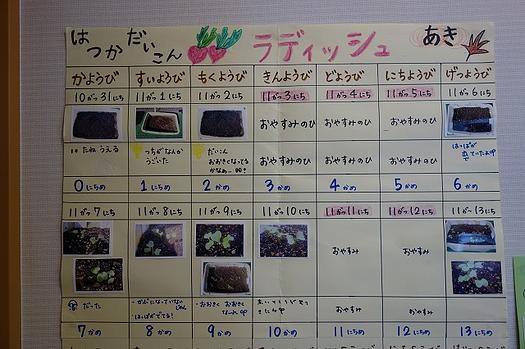 はつかだいこん ラディッシュ あき
かようび すいようび もくようび きんようび どようび にちようび げつようび
10がつ31にち 11がつ1にち 11がつ2にち 11がつ3にち 11がつ4にち 11がつ5にち 11がつ6にち
おやすみのひ おやすみのひ おやすみのひ
たねうえる つちがなんか うごいた だいこん おおきくなってる かなぁ おやすみのひ おやすみのひ おやすみのひ はっぱが でていたよ
0にちめ 1にちめ 2かめ 3かめ 4かめ 5かめ 6かめ
11がつ7にち 11がつ8にち 11がつ9にち 11がつ10にち 11がつ11にち 11がつ12にち 11がつ13にち
おやすみ おやすみ
だった はっぱがでてる! おおきく おおきく なぁれ おやすみ おやすみ
7かめ 8かめ 9かめ 10かめ 11にちめ 12にちめ 13にちめ